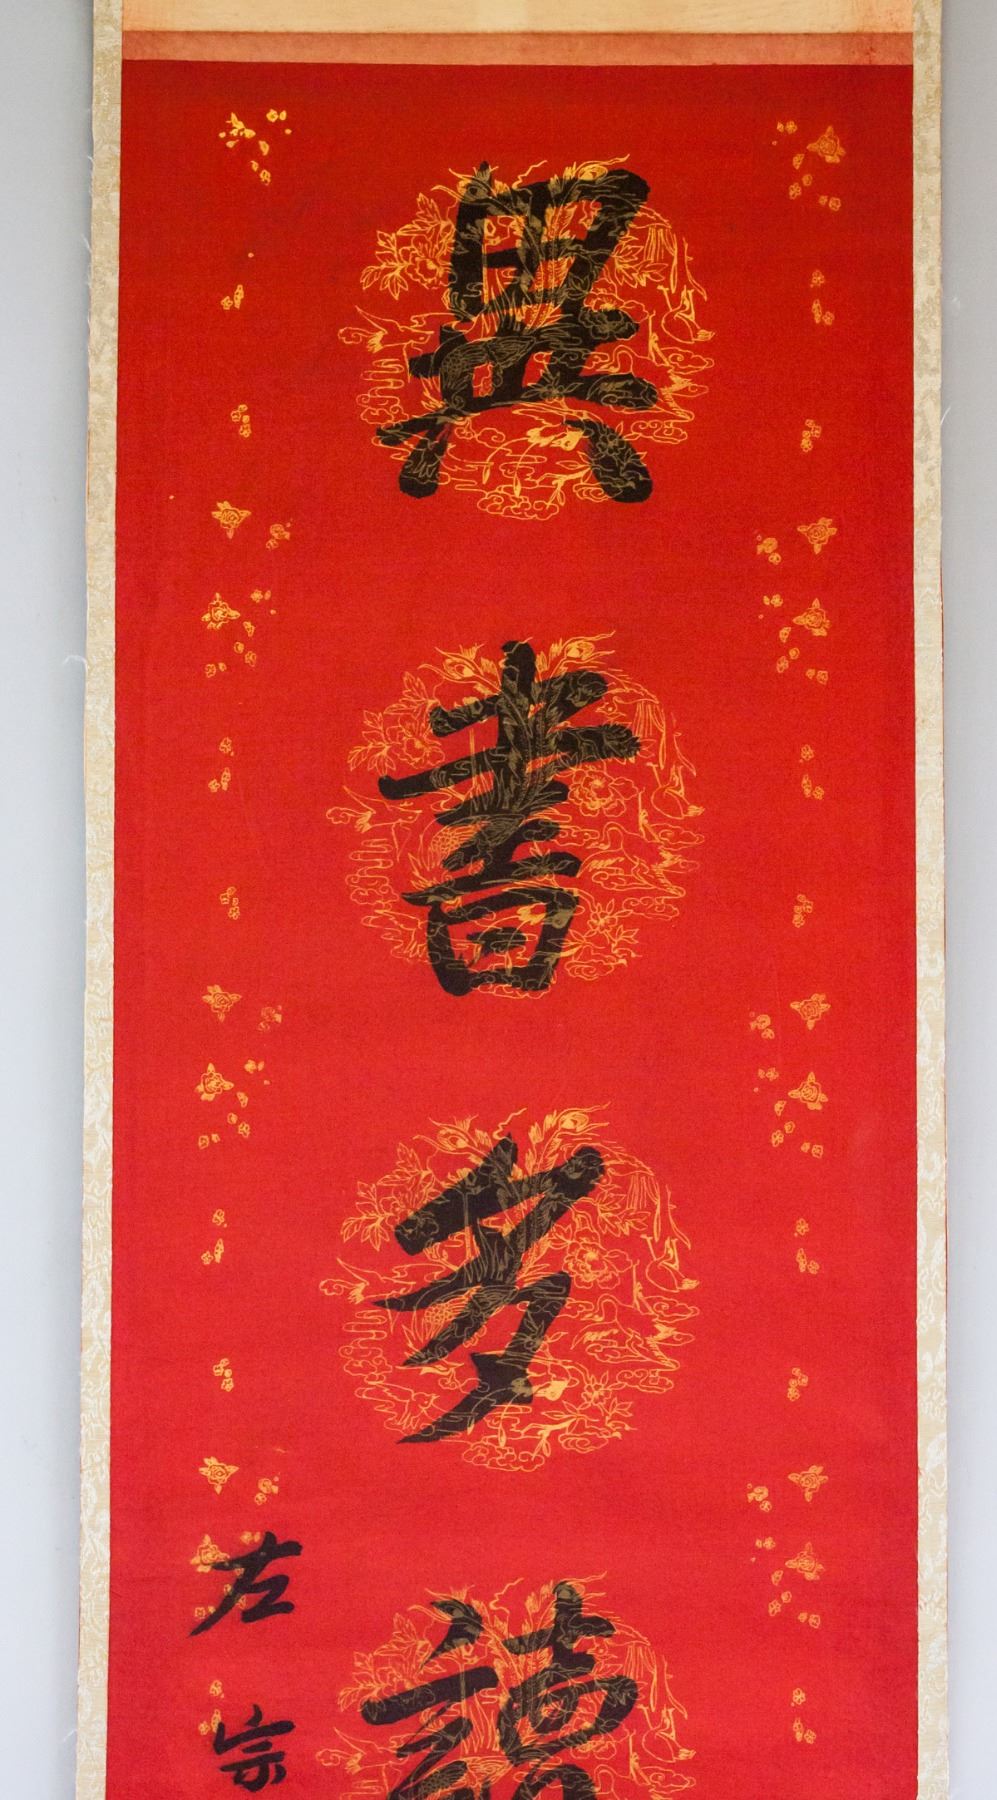 異書多讀
左宗